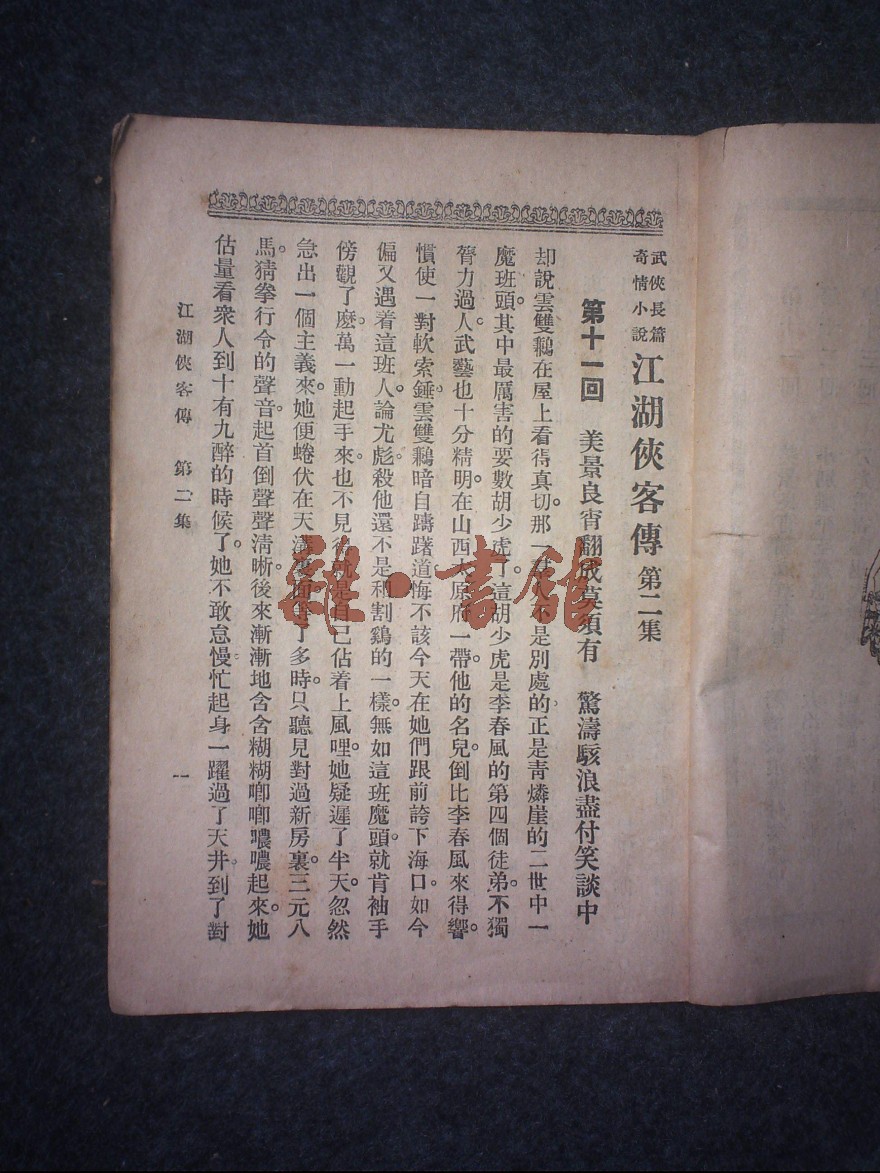 武俠長篇
奇情小說
江湖俠客傳 第二集
第十一回 美景良宵翻成莫須有 驚濤駭浪盡付笑談中
却說雲雙鶼在屋上看得真切。那一人不是別處的正是青燐崖的二世中一
魔班頭。其中最厲害的要數胡少虎了。這胡少虎是李春風的第四個徒弟。不獨
膂力過人。武藝也十分精明。在山西太原府一帶。他的名兒。倒比李春風來得響。
慣使一對軟索錘。雲雙鶼暗自躊躇道。悔不該今天在她們跟前誇下海口。如今
偏又遇着這班人。論尤彪。殺他還不是和割鷄的一樣。無如這班魔頭。就肯袖手
傍觀了麽。萬一動起手來。也不見得就是自己佔着上風哩。她疑遲了半天。忽然
急出一個主義來。她便蜷伏在天溝裏面。了多時。只聽見對過新房裏。三元八
馬。猜拳行令的聲音。起首倒聲聲清晰。後來漸漸地含含糊糊唧唧噥噥起來。她
估量看衆人到十有九醉的時候了。她不敢怠慢。忙起身一躍過了天井。到了對
江湖俠客傳 第二集
一
雜·書館